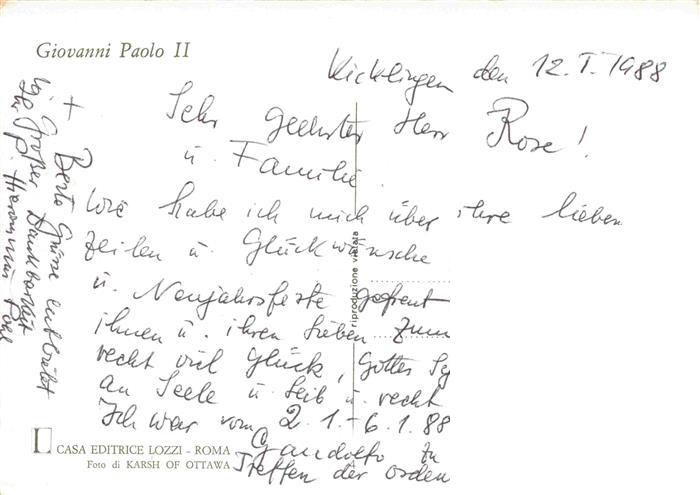 Giovanni Paolo II
Kicklingen den 12.I.1988
Sehr geehrter Herr Rose!
u. Familie
Wie habe ich mich über ihre lieben
Zeilen u. Glückwünsche
u. Neujahrsfeste gefreut
ihnen u. ihren Lieben zum
recht viel Glück, Gottes Seg
an Seele u. Leib u. recht
Ich war vom 2.1.-6.1.88
Gandolfo zu
Treffen der Orden
riproduzione vietata
L CASA EDITRICE LOZZI - ROMA
Foto di KARSH OF OTTAWA
+ Beste Grüsse entbietet
in Großer Dankbarkeit
P. Hieronymus